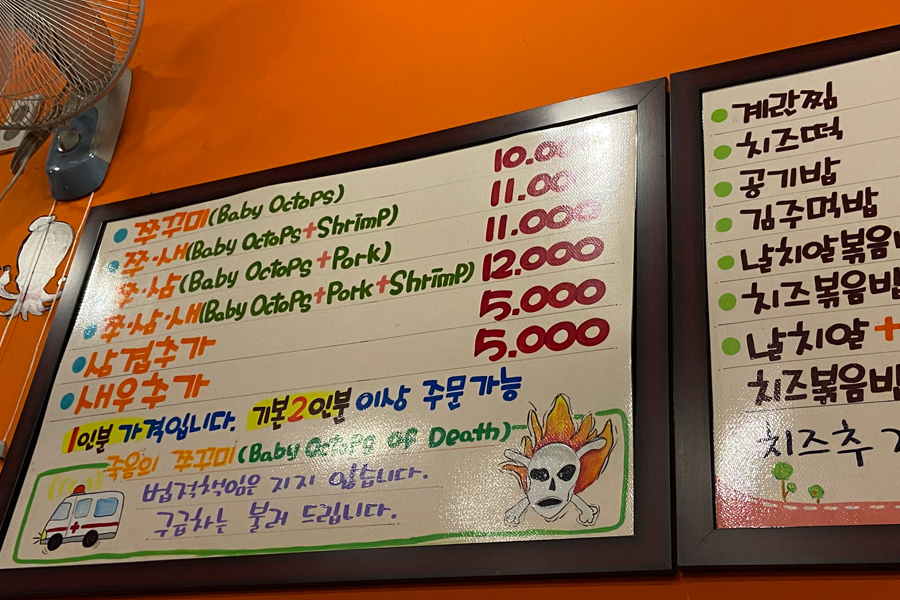 쭈꾸미(Baby OctoPs) 10.00
쭈·새(Baby OctoPs+Shrimp) 11.000
쭈·삼(Baby OctoPs+Pork) 11.000
쭈·삼·새(Baby OctoPs+Pork+Shrimp) 12.000
삼겹추가 5.000
새우추가 5.000
1인분 가격입니다. 기본2인분 이상 주문가능
죽음의 쭈꾸미(Baby OctoPs OF Death)
법적책임은 지지 않습니다.
구급차는 불러 드립니다.
계란찜
치즈떡
공기밥
김주먹밥
날치알볶음
치즈볶음밥
날치알+
치즈볶음밥
치즈추